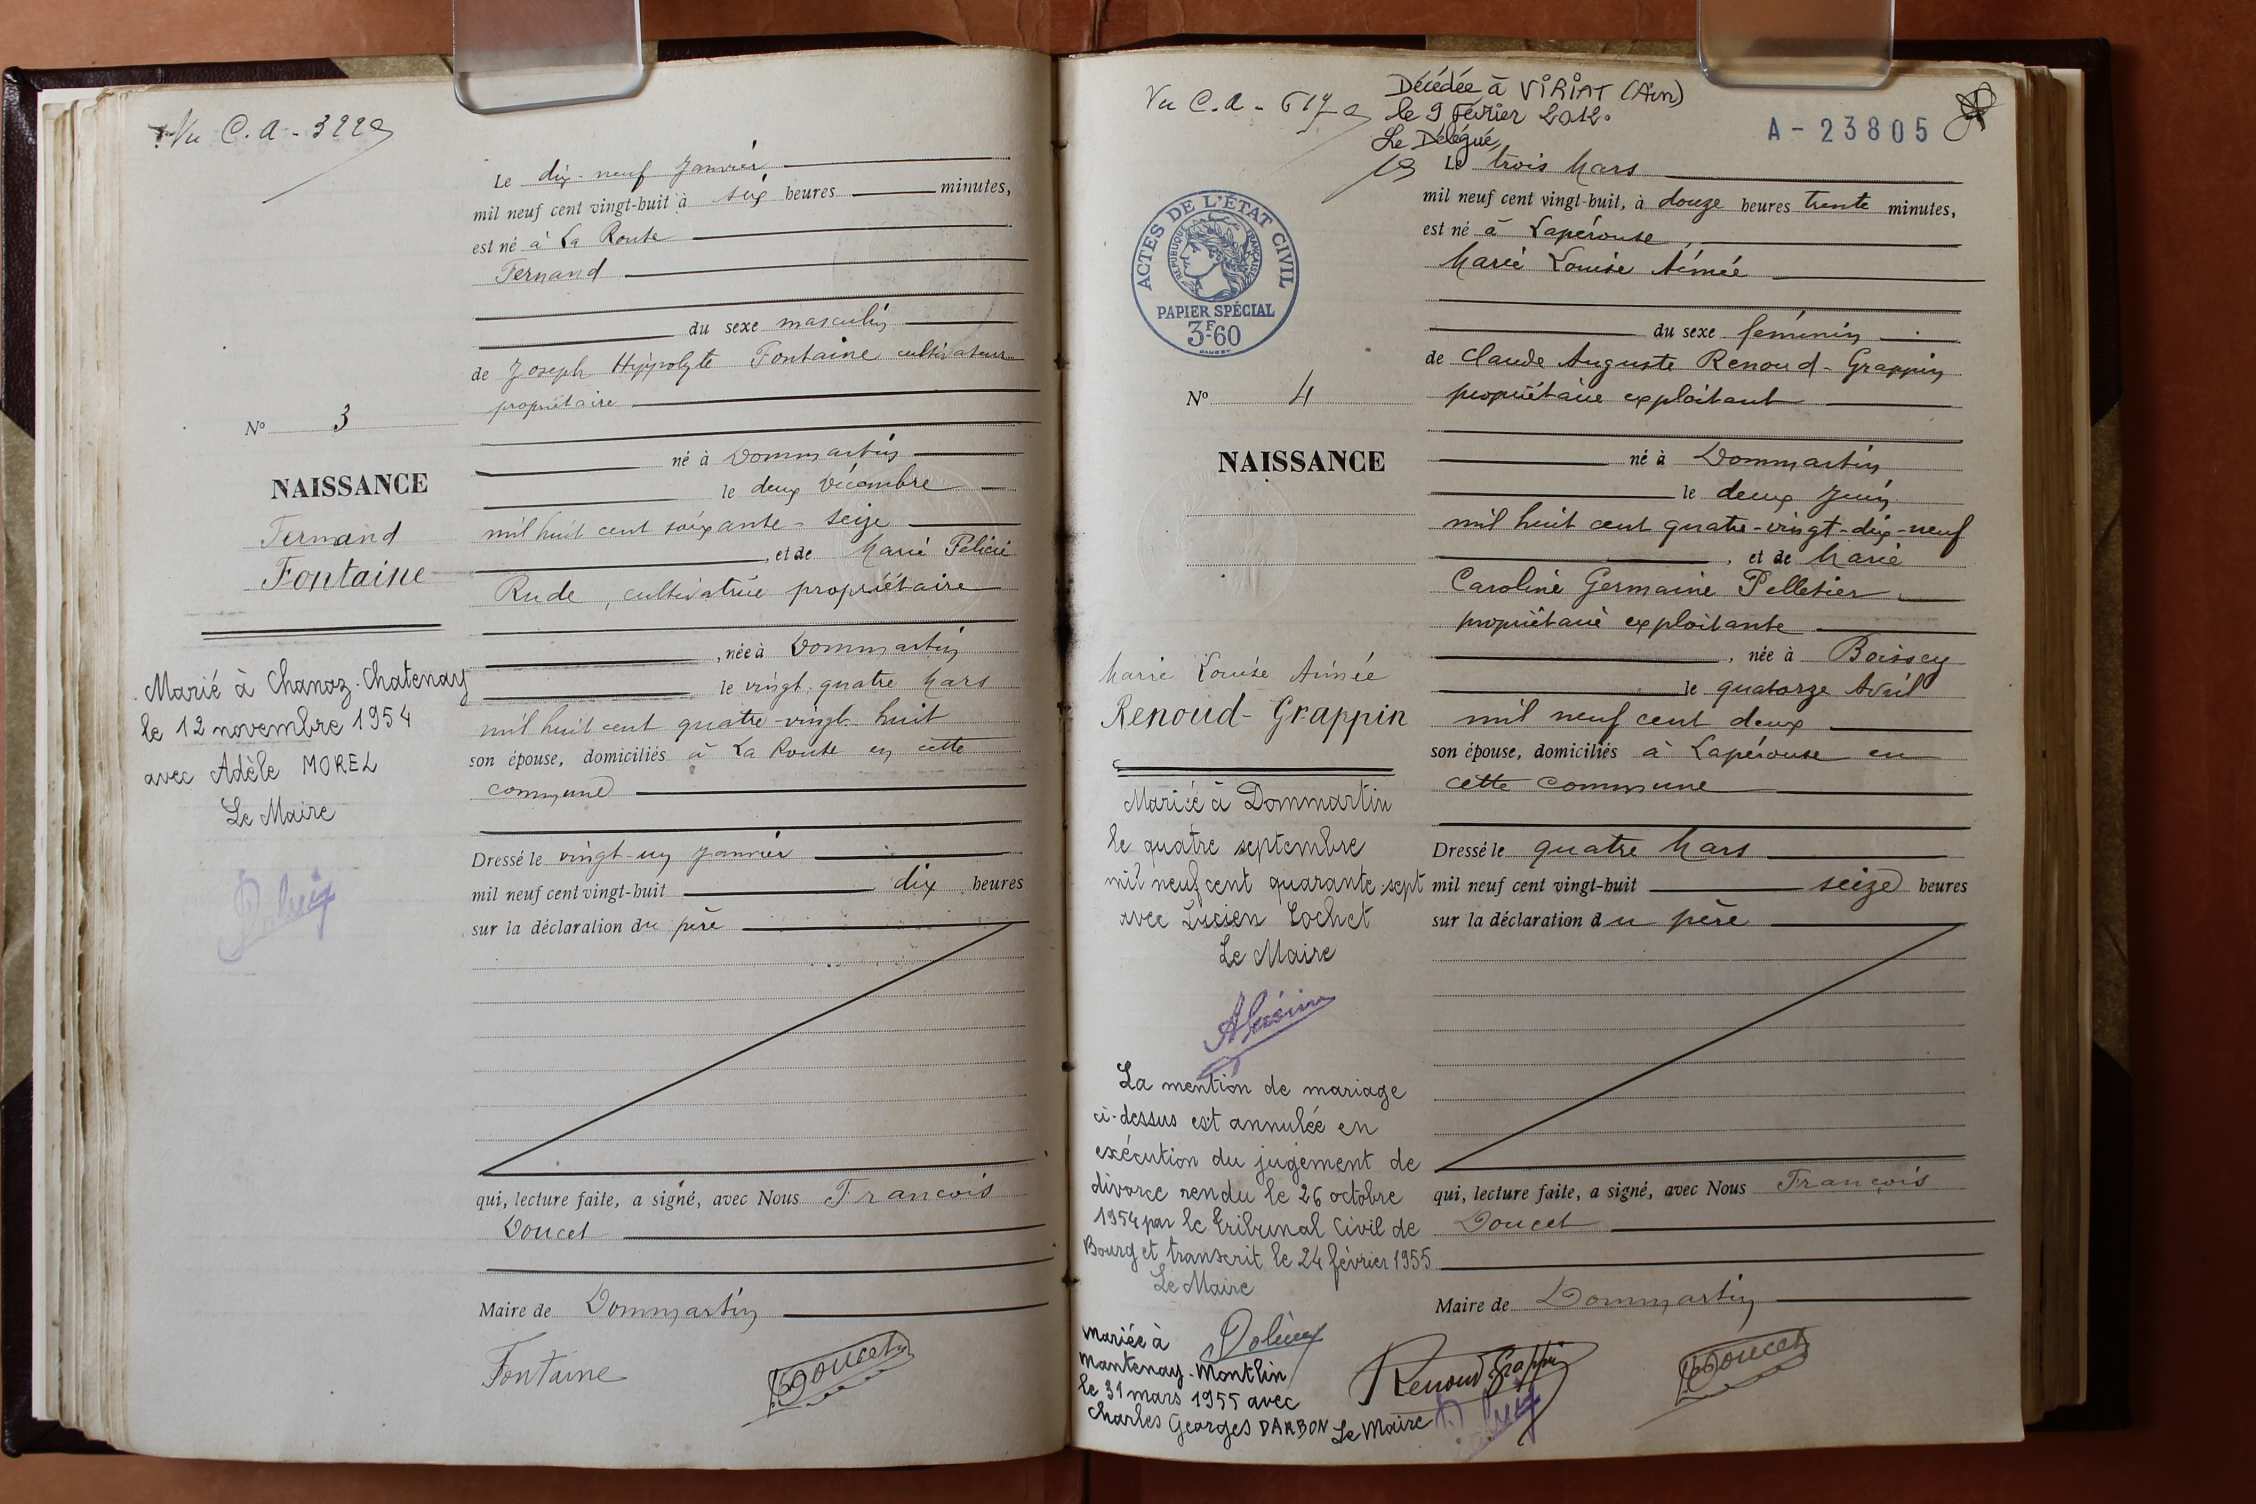 Vu C.a - 322
Le dix-neuf Janvier
mil neuf cent vingt-huit à six heures minutes,
est né à La Route
Fernand
du sexe masculin
de Joseph Hippolyte Fontaine cultivateur
propriétaire
né à Dommartin
le deux Décembre
mil huit cent soixante-seize
, et de Marie Félicie
Rude, cultivatrice propriétaire
, née à Dommartin
le vingt-quatre Mars
mil huit cent quatre-vingt huit
son épouse, domiciliés à La Route en cette
commune
Dressé le vingt-un Janvier
mil neuf cent vingt-huit dix heures
sur la déclaration du père
qui, lecture faite, a signé, avec Nous François
Doucet
Maire de Dommartin
Fontaine Doucet
No 3
NAISSANCE
Fernand
Fontaine
Marié à Chanoz-Chatenay
le 12 novembre 1954
avec Adèle MOREL
Le Maire
Vu C.a - 617
Décédée à VIRIAT (Ain)
le 9 Février 2012.
Le Délégué,
A - 23805
ACTES DE L'ÉTAT CIVIL
RÉPUBLIQUE FRANÇAISE
PAPIER SPÉCIAL
3F60
Le trois Mars
mil neuf cent vingt-huit, à douze heures trente minutes,
est né à Lapérouse
Marie Louise Aimée
du sexe féminin
de Claude Auguste Renoud-Grappin
propriétaire exploitant
né à Dommartin
le deux Juin
mil huit cent quatre-vingt-dix-neuf
, et de Marie
Caroline Germaine Pelletier
propriétaire exploitante
, née à Boissey
le quatorze Avril
mil neuf cent deux
son épouse, domiciliés à Lapérouse en
cette commune
Dressé le quatre Mars
mil neuf cent vingt-huit seize heures
sur la déclaration du père
qui, lecture faite, a signé, avec Nous François
Doucet
Maire de Dommartin
Renoud Grappin Doucet
No 4
NAISSANCE
Marie Louise Aimée
Renoud-Grappin
Mariée à Dommartin
le quatre septembre
mil neuf cent quarante-sept
avec Lucien Lochet
Le Maire
La mention de mariage
ci-dessus est annulée en
exécution du jugement de
divorce rendu le 26 octobre
1954 par le Tribunal Civil de
Bourg et transcrit le 24 février 1955
Le Maire
Mariée à
Mantenay-Montlin
le 31 mars 1955 avec
Charles Georges DARBON Le Maire